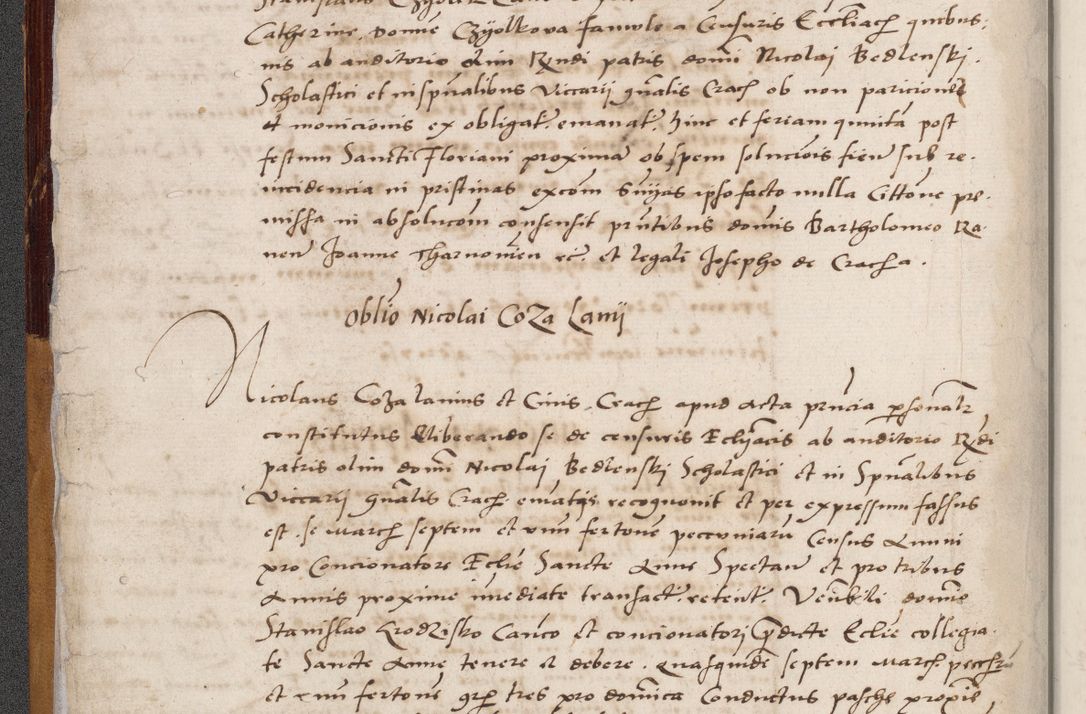 Catherine, Donne Czyolkowa famule a Censuris Eccliach quibus:
nis ab auditorio olim Rndi patris domi Nicolai Bedlenski.
Scholastici et in spualibus Viccarii gnalis Crach ob non paricione
et monicionis ex obligat. emanat. hinc et feriam quinta post
festum Sancti Floriani proxima ob spem solucois fien sub re-
incidencia in pristinas excom Snias ipso facto nulla Cittone pre-
missa in absolucom consensit pntibus domis Bartholomeo Ra-
nen Joanne Tharnowien rc. et legali Josepho de Crach a.
Oblio Nicolai Coza Lanii
Nicolaus Coza lanius et Civis, Crach apud Acta pncia psonalr
constitutus Cliberando se de censuris Eccliacis ab auditorio Rndi
patris olim domi Nicolai Bedlenski Scholastici et in Spualibus
Viccarii gnalis Crach ematis recognovit et per expressum fassus
est. se March septem et unu fertone peccuniaru Census Annui
pro Concionatore Eclie Sancte Anne Spectan et pro tribus
Annis proxime imediate transact. retent. Venbili domino
Stanislao Grodzisko Canco et concionatori pdicte Eclee collegia-
te Sancte Anne tenere et debere. Quasquide septem March pecchru
et unu fertone gr tres pro domica Conductus pasche proxie